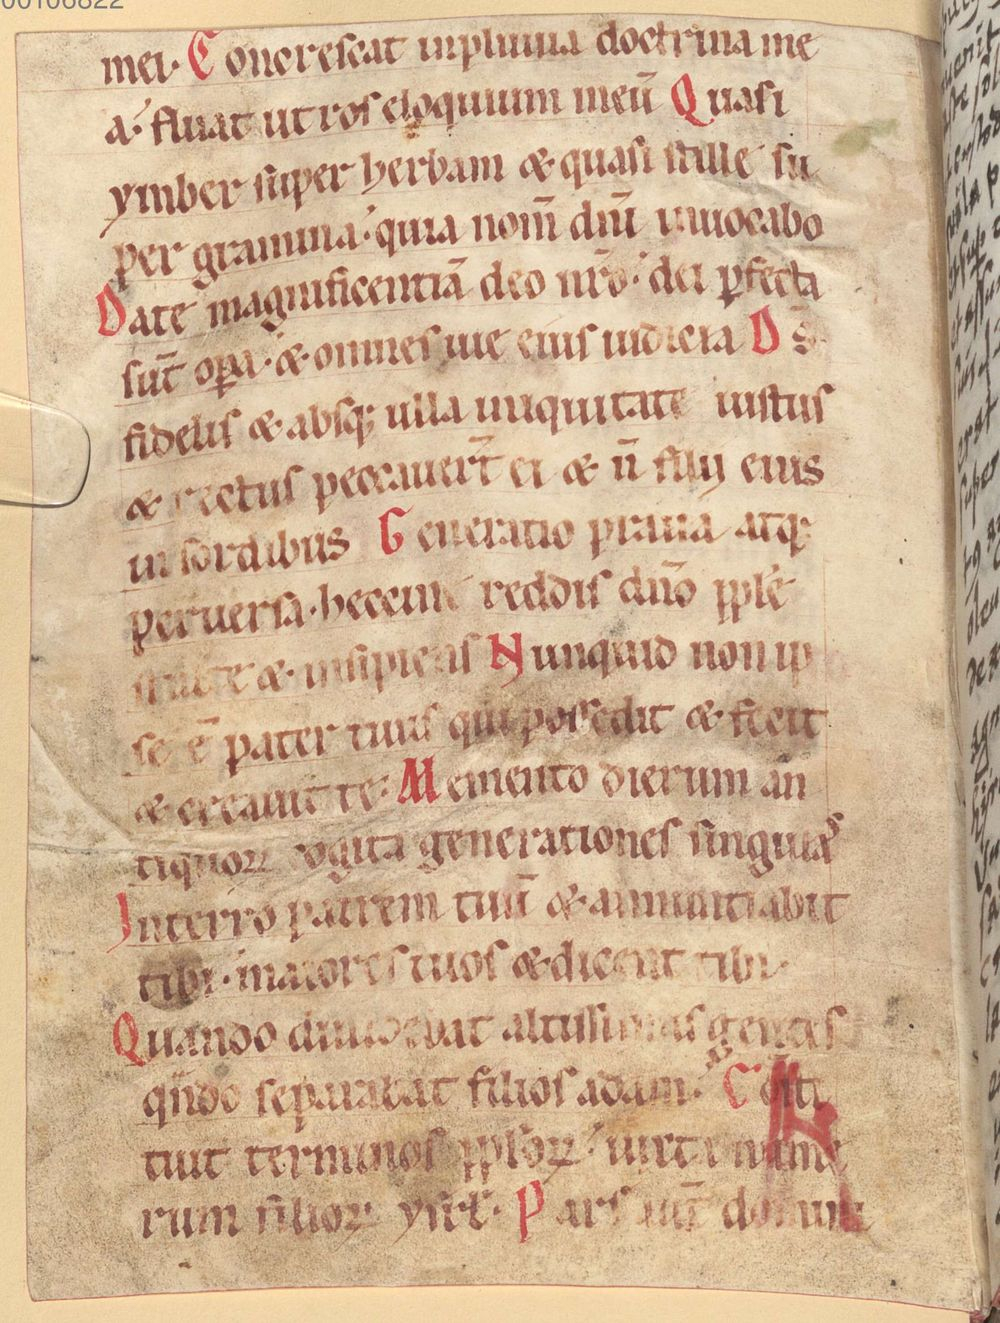 00106822
mei· Concrescat inpluuia doctrina me
a· fluat ut ros eloquium meū Quasi
ymber super herbam & quasi stille su
per gramina· quia nom̄ dn̄i inuocabo
Date magnificentiā deo nr̄o· dei ꝑfecta
sūt oꝑa· & omnes uie eius iudicia Ds̄
fidelis & absq; ulla iniquitate iustus
& rectus peccauerт̄ ei & n̄ filij eius
in sordibus Generatio praua atq;
peruersa· heccine reddis dn̄o pp̄le
stulte & insipiens Nunquid non ip
se ē pater tuus qui possedit & fecit
& creauit te· Memento dierum an
tiquoꝝ cogita generationes singulas
Interro patrem tuū & annuntiabit
tibi· maiores tuos & dicent tibi·
Quando diuidebat altissimus gentes
qn̄do separabat filios adam· Cōsti
tuit terminos pp̄loꝝ· iuxta nume
rum filioꝝ isrł· Pars aūт domini